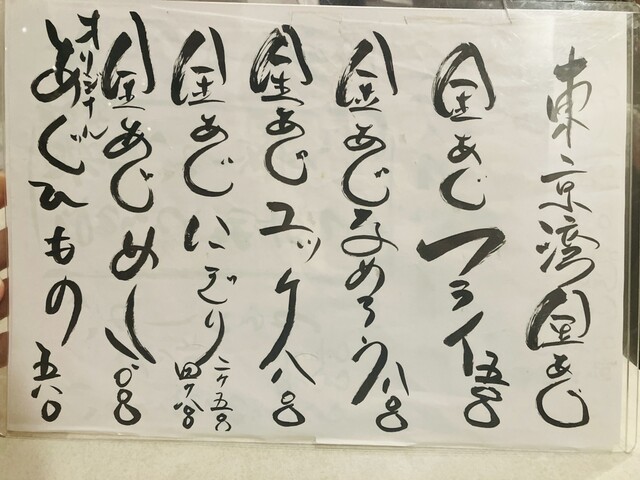 東京湾金あじ
金あじフライ五〇〇
金あじなめろう八〇〇
金あじユッケ八〇〇
金あじにぎり
二ケ五〇〇
四ケ八〇〇
金あじめし八〇〇
オリジナル
あじひもの五八〇